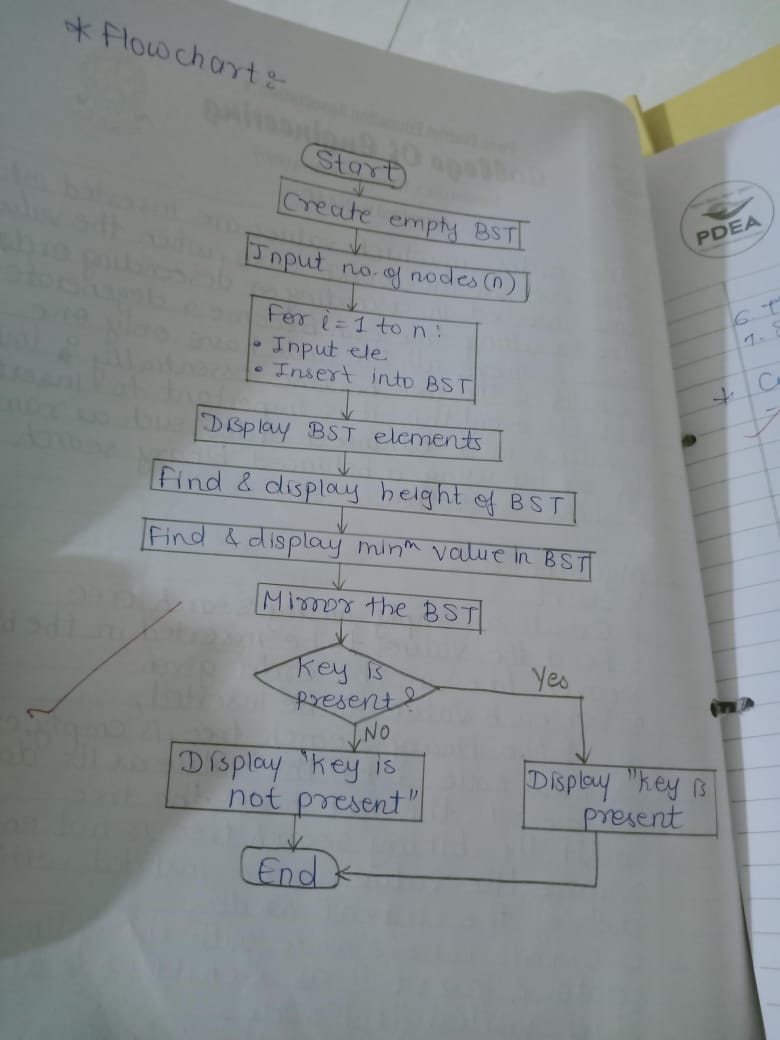 * Flowchart :-
Start
Create empty BST
Input no. of nodes (n)
For i = 1 to n :
• Input ele
• Insert into BST
Display BST elements
Find & display height of BST
Find & display minm value in BST
Mirror the BST
Key is
present?
Yes
NO
Display "Key is
not present"
Display "Key is
present
End
PDEA
6. T
7. S
* Co